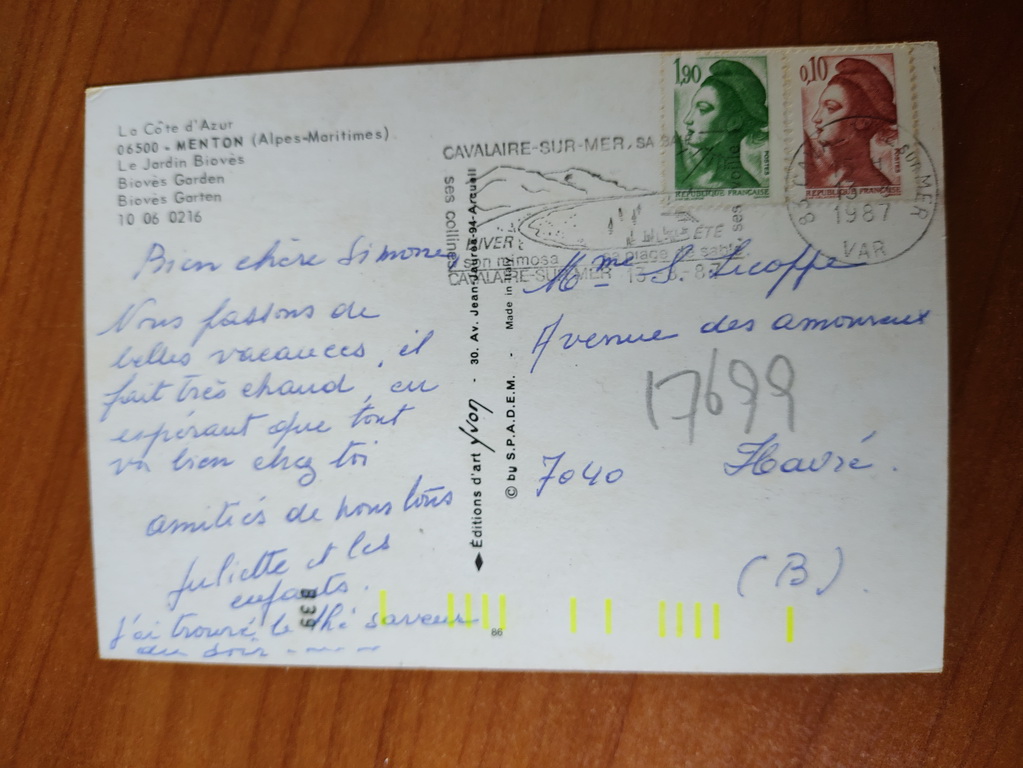 La Côte d'Azur
06500 - MENTON (Alpes-Maritimes)
Le Jardin Biovès
Biovès Garden
Biovès Garten
10 06 0216
Bien chère Simone
Nous passons de
belles vacances, il
fait très chaud, en
espérant que tout
va bien chez toi
amitiés de nous tous
Juliette et les
enfants.
J'ai trouvé le thé saveur
du soir - - - -
B39
◆ Éditions d'art yvon - 30. Av. Jean-Jaurès-94-Arcueil
© by S.P.A.D.E.M. - Made in Italy
86
1,90
RÉPUBLIQUE FRANÇAISE
0,10
RÉPUBLIQUE FRANÇAISE
CAVALAIRE-SUR-MER, SA
ses collines
HIVER :
son mimosa
ÉTÉ
plage de sable
ses
CAVALAIRE-SUR-MER
SUR MER
1987
VAR
Mme S. Licoppe
Avenue des amoureux
17699
7040 Havré.
(B)